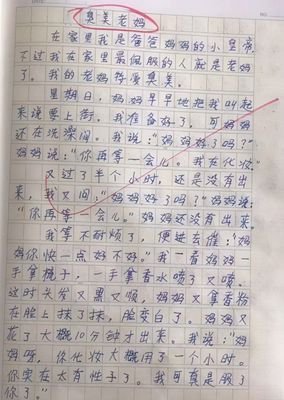 臭美老妈
在家里我是爸爸妈妈的小皇帝,
不过我在家里最佩服的人就是老妈
了。我的老妈特爱臭美。
星期日,妈妈早早地把我叫起
来说要上街。我准备好了,可妈妈
还在洗澡间。我说:“妈妈好了吗?”
妈妈说:“你再等一会儿。我在化妆”
又过了半个小时,还是没有出
来,我又问:“妈妈好了吗?”妈妈说:
“你再等一会儿。”妈妈还没有出来。
我等不耐烦了,便进去催:“妈
妈你快一点好不好。”我一看妈妈一
手拿梳子,一手拿香水喷了又喷。
这时头发又黑又顺,妈妈又拿香粉
在脸上抹了抹,脸变白了。妈妈又
花了大概10分钟才出来。我说:“妈
妈呀,你化妆大概用了一个小时。
你实在太有性子了。我可真是服了
你了。”